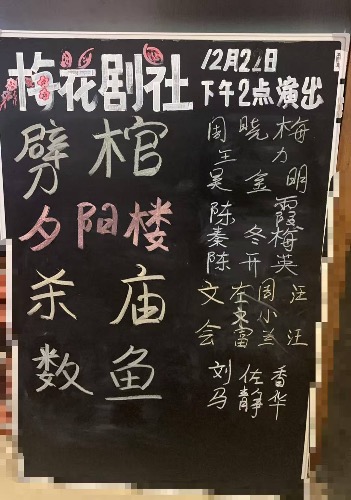 梅花剧社 12月22日
下午2点演出
劈棺 周晓梅
王力
吴金明
夕阳楼 陈霞
秦冬梅
陈开英
杀庙 周小兰
数鱼 刘佐香
马静华